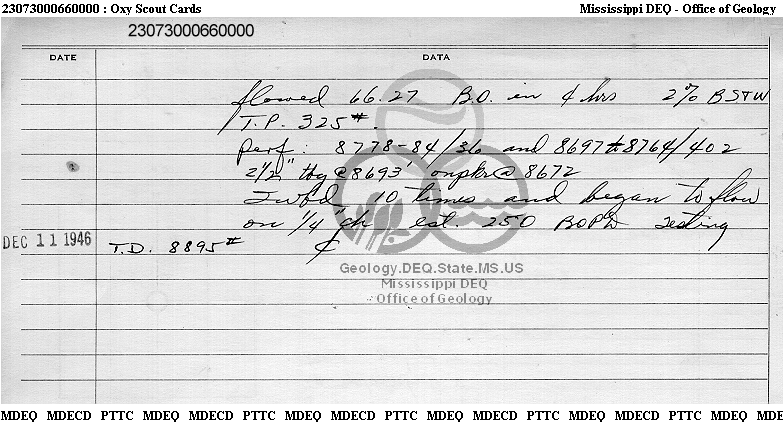 23073000660000 : Oxy Scout Cards Mississippi DEQ - Office of Geology
23073000660000
DATE DATA
flowed 66.27 B.O. in 4 hrs 2% BS+W
T.P. 325#.
perf: 8778-84/36 and 8697 to 8764/402
2½" tbg @ 8693' on pkr @ 8672
Swbd 10 times and began to flow
on ¼" ch est. 250 BOPD testing
DEC 11 1946 T.D. 8895#
Geology.DEQ.State.MS.US
Mississippi DEQ
Office of Geology
MDEQ MDECD PTTC MDEQ MDECD PTTC MDEQ MDECD PTTC MDEQ MDECD PTTC MDEQ MDECD PTTC MDEQ MDE